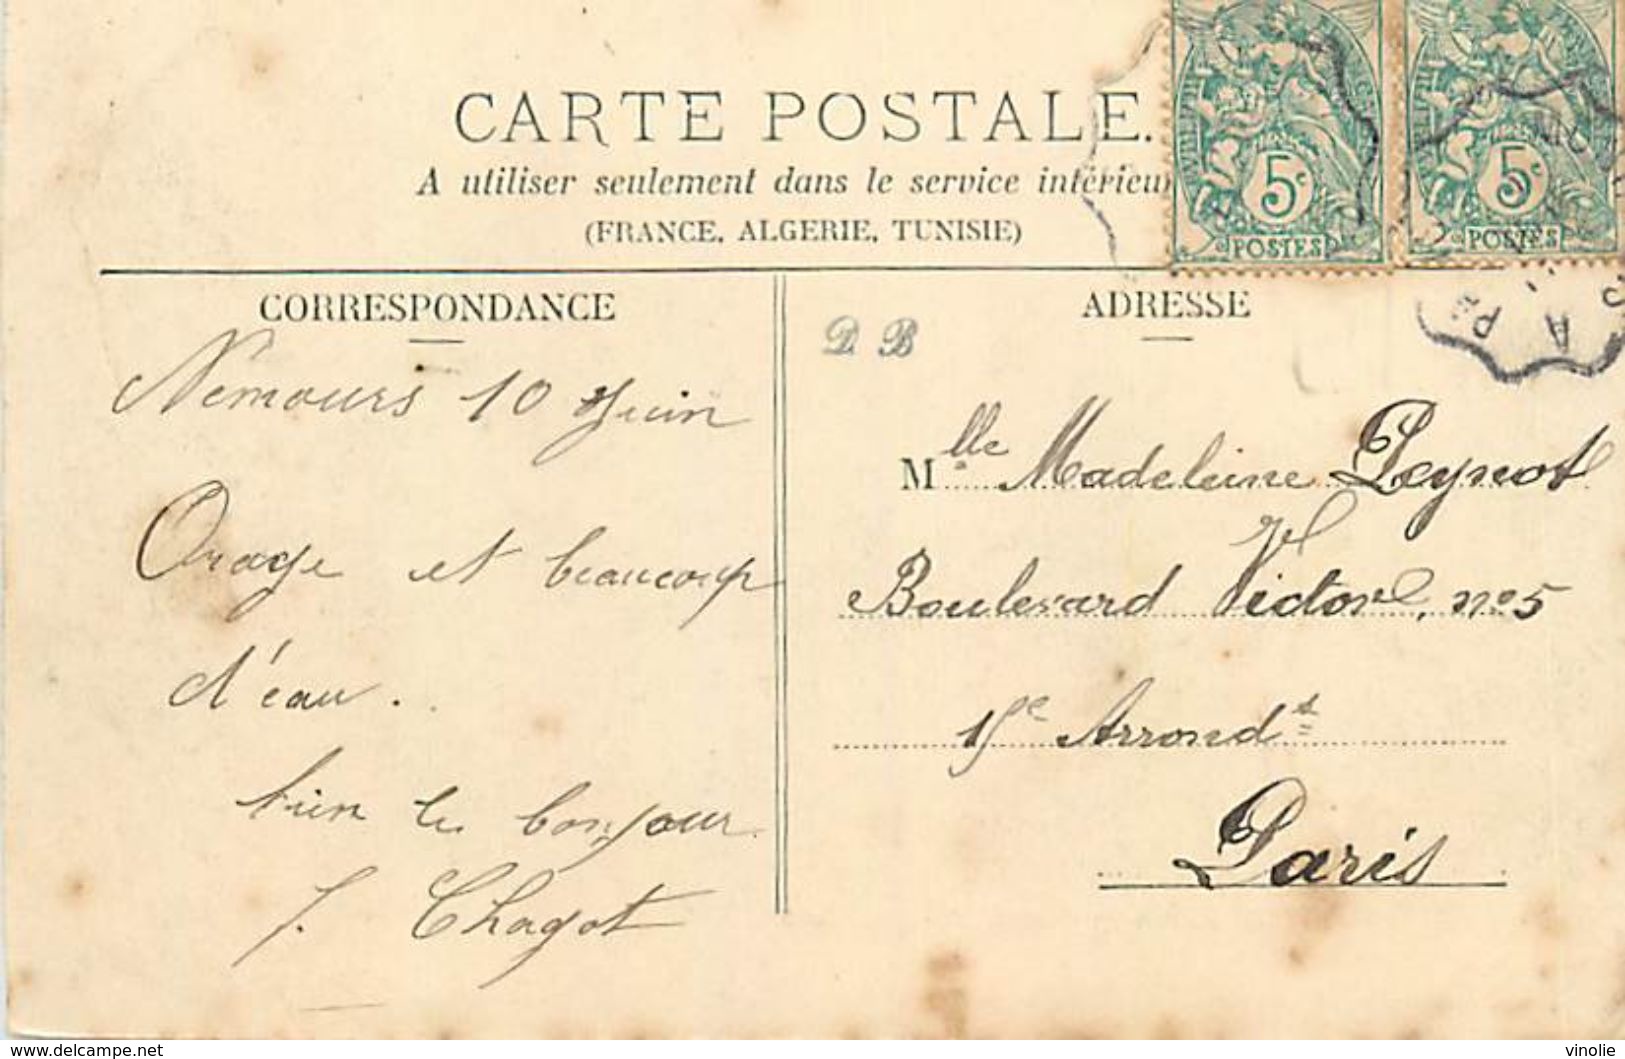 CARTE POSTALE.
A utiliser seulement dans le service intérieur
(FRANCE, ALGERIE, TUNISIE)
5c
POSTES
5c
POSTES
CORRESPONDANCE
Nemours 10 Juin
Orage et beaucoup
d'eau.
bien le bonjour
J. Chagot
ADRESSE
D B
Mlle Madeleine Peynot
Boulevard Victor, no 5
15e Arrondt
Paris
www.delcampe.net
vinolie